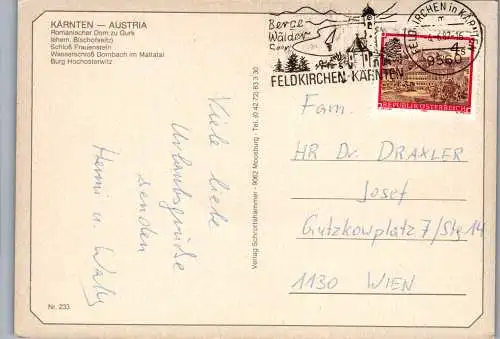 KÄRNTEN — AUSTRIA
Romanischer Dom zu Gurk
(ehem. Bischofssitz)
Schloß Frauenstein
Wasserschloß Dornbach im Maltatal
Burg Hochosterwitz
Viele liebe
Urlaubsgrüße
senden
Hermi u. Walter
Nr. 233
Verlag Schrottshammer - 9062 Moosburg - Tel. (0 42 72) 83 3 30
Berge
Wälder
Seen
FELDKIRCHEN-KÄRNTEN
FELDKIRCHEN in KÄRNTEN
9560
4 S
REPUBLIK ÖSTERREICH
Fam.
HR Dr. DRAXLER
Josef
Gutzkowplatz 7/Stg 14
1130 WIEN